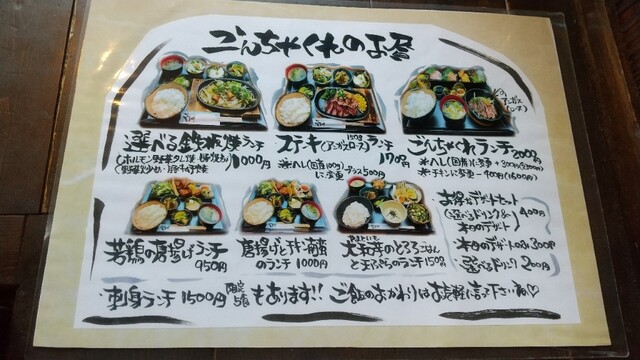 ごんちゃくれのお昼
選べる鉄板焼ランチ
1000円
ステーキ(アンガスロース)150gランチ
1700円
※ヘレ(国産100g)に変更プラス500円
ごんちゃくれランチ2000円
※ヘレ(国産)に変更+300円
※チキンに変更-400円(1600円)
若鶏の唐揚げランチ
950円
唐揚げとチキン南蛮
のランチ1000円
大和芋のとろろごはん
と天ぷらのランチ
お得なデザートセット
(選べるドリンク&
本日のデザート
400円
本日のデザートのみ300円
選べるドリンク200円
刺身ランチ1500円限定5食もあります!!ご飯のおかわりはお気軽に言って下さいね♡